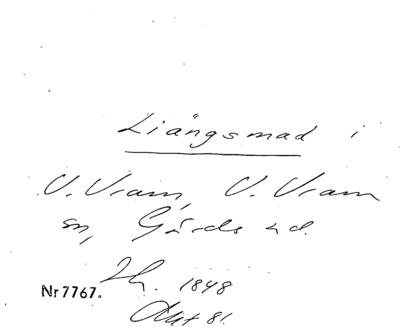 Liängsmad i
V. Vram, V. Vram
sn, Gärds hd.
1848
Nr 7767.
Akt 81.